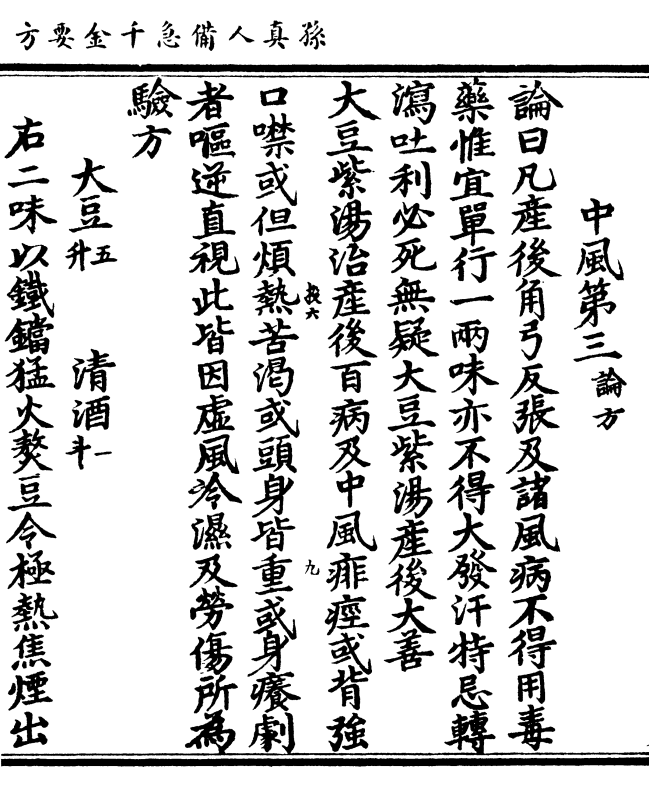 孫真人備急千金要方
中風第三論方
論曰凡產後角弓反張及諸風病不得用毒
藥惟宜單行一兩味亦不得大發汗特忌轉
瀉吐利必死無疑大豆紫湯產後大善
大豆紫湯治產後百病及中風痱痙或背強
口噤或但煩熱苦渴或頭身皆重或身癢劇
者嘔逆直視此皆因虛風冷濕及勞傷所為
驗方
大豆五升 清酒一斗
右二味以鐵鐺猛火熬豆令極熱焦煙出
九